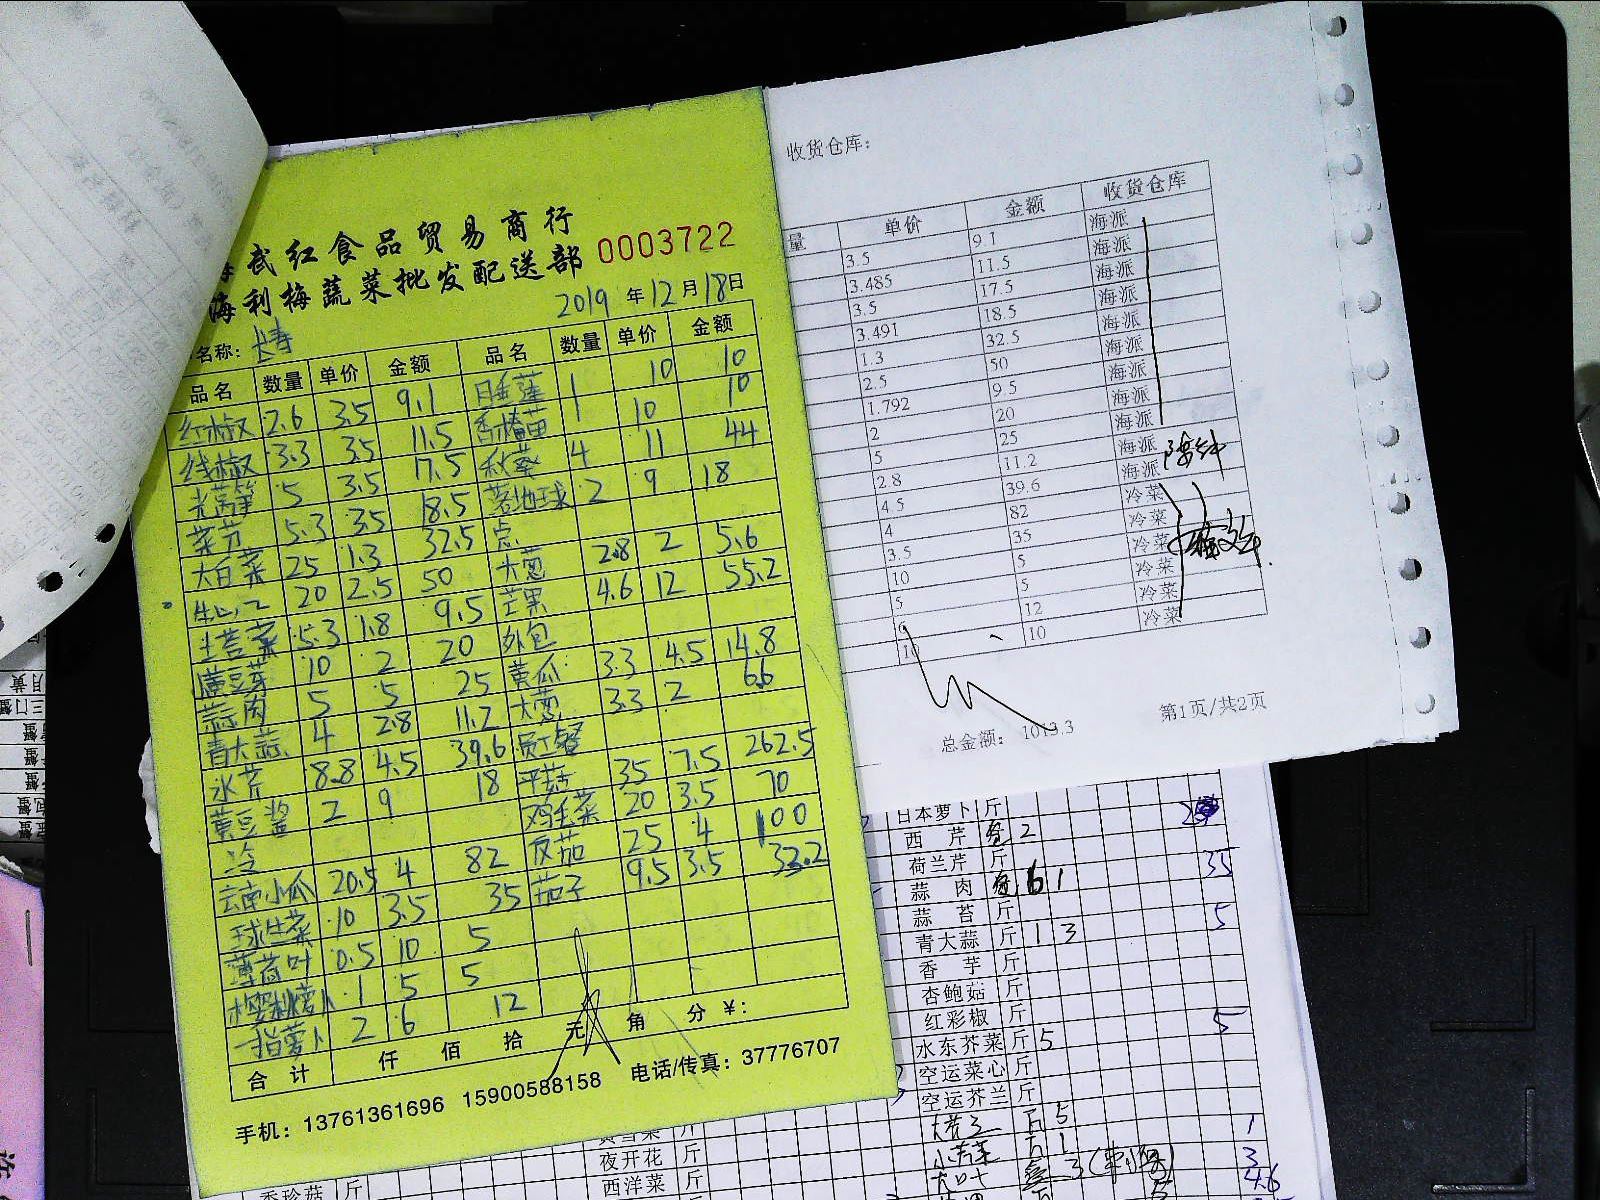 武红食品贸易商行
海利梅蔬菜批发配送部 0003722
2019 年 12 月 18 日
名称:
品名 数量 单价 金额 品名 数量 单价 金额
红椒 2.6 3.5 9.1 睡莲 1 10 10
线椒 3.3 3.5 11.5 香椿苗 1 10 10
光莴笋 5 3.5 17.5 秋葵 4 11 44
菜芥 5.3 3.5 18.5 落地球 2 9 18
大白菜 25 1.3 32.5 点
20 2.5 50 大葱 2.8 2 5.6
生苔菜 5.3 1.8 9.5 芒果 4.6 12 55.2
黄豆芽 10 2 20 外包
蒜肉 5 5 25 黄瓜 3.3 4.5 14.8
青大蒜 4 2.8 11.2 大葱 3.3 2 6.6
水芹 8.8 4.5 39.6 员工餐
黄豆酱 2 9 18 平菇 35 7.5 262.5
冷 鸡毛菜 20 3.5 70
云南小瓜 20.5 4 82 反茄 25 4 100
球生菜 10 3.5 35 茄子 9.5 3.5 33.2
薄荷叶 0.5 10 5
樱桃萝卜 1 5 5
一指萝卜 2 6 12
合计 仟 佰 拾 元 角 分 ¥:
手机: 13761361696 15900588158 电话/传真: 37776707
收货仓库:
量 单价 金额 收货仓库
3.5 9.1 海派
3.485 11.5 海派
3.5 17.5 海派
3.491 18.5 海派
1.3 32.5 海派
2.5 50 海派
1.792 9.5 海派
2 20 海派
5 25 海派
2.8 11.2 海派
4.5 39.6 海派
4 82 冷菜
3.5 35 冷菜
10 5 冷菜
5 5 冷菜
6 12 冷菜
10 10 冷菜
总金额: 1013.3
第1页/共2页
日本萝卜 斤
西芹 2
荷兰芹 斤 35
蒜肉 6 1
蒜苔 斤 5
青大蒜 斤 1 3
香芋 斤
杏鲍菇 斤
红彩椒 斤 5
水东芥菜 斤 5
空运菜心 斤
空运芥兰 斤
5 1
1 3
大叶 3 4.6
夜开花 斤
西洋菜 斤
香珍菇 斤